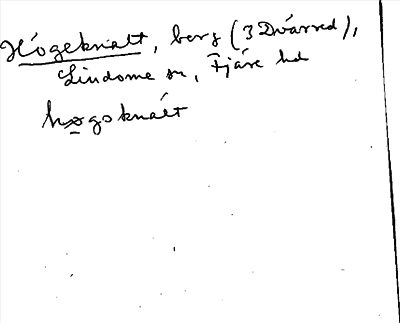 Högeknatt, berg (3 Dvärred),
Lindome sn, Fjäre hd
høgoknätt